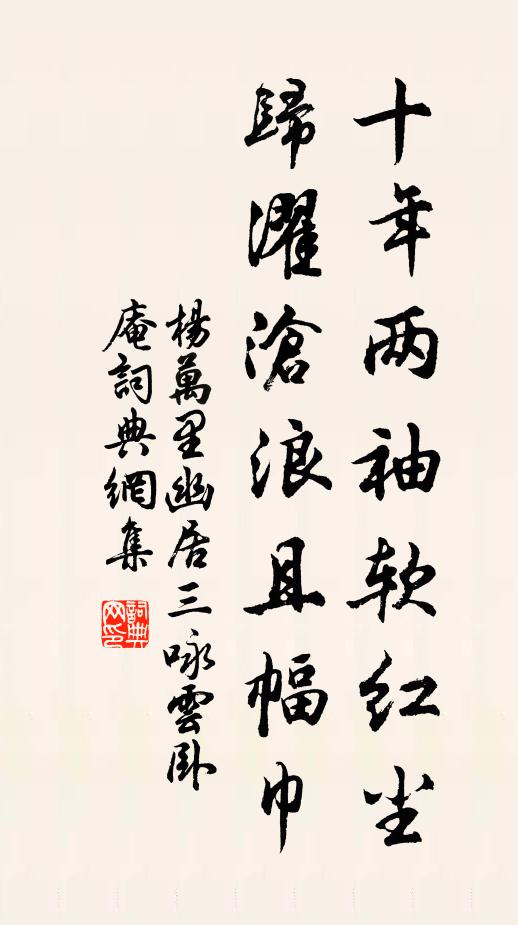 十年两袖软红尘
歸濯滄浪且幅巾
楊萬里幽居三咏雲卧
庵詞典網集
詞典网印